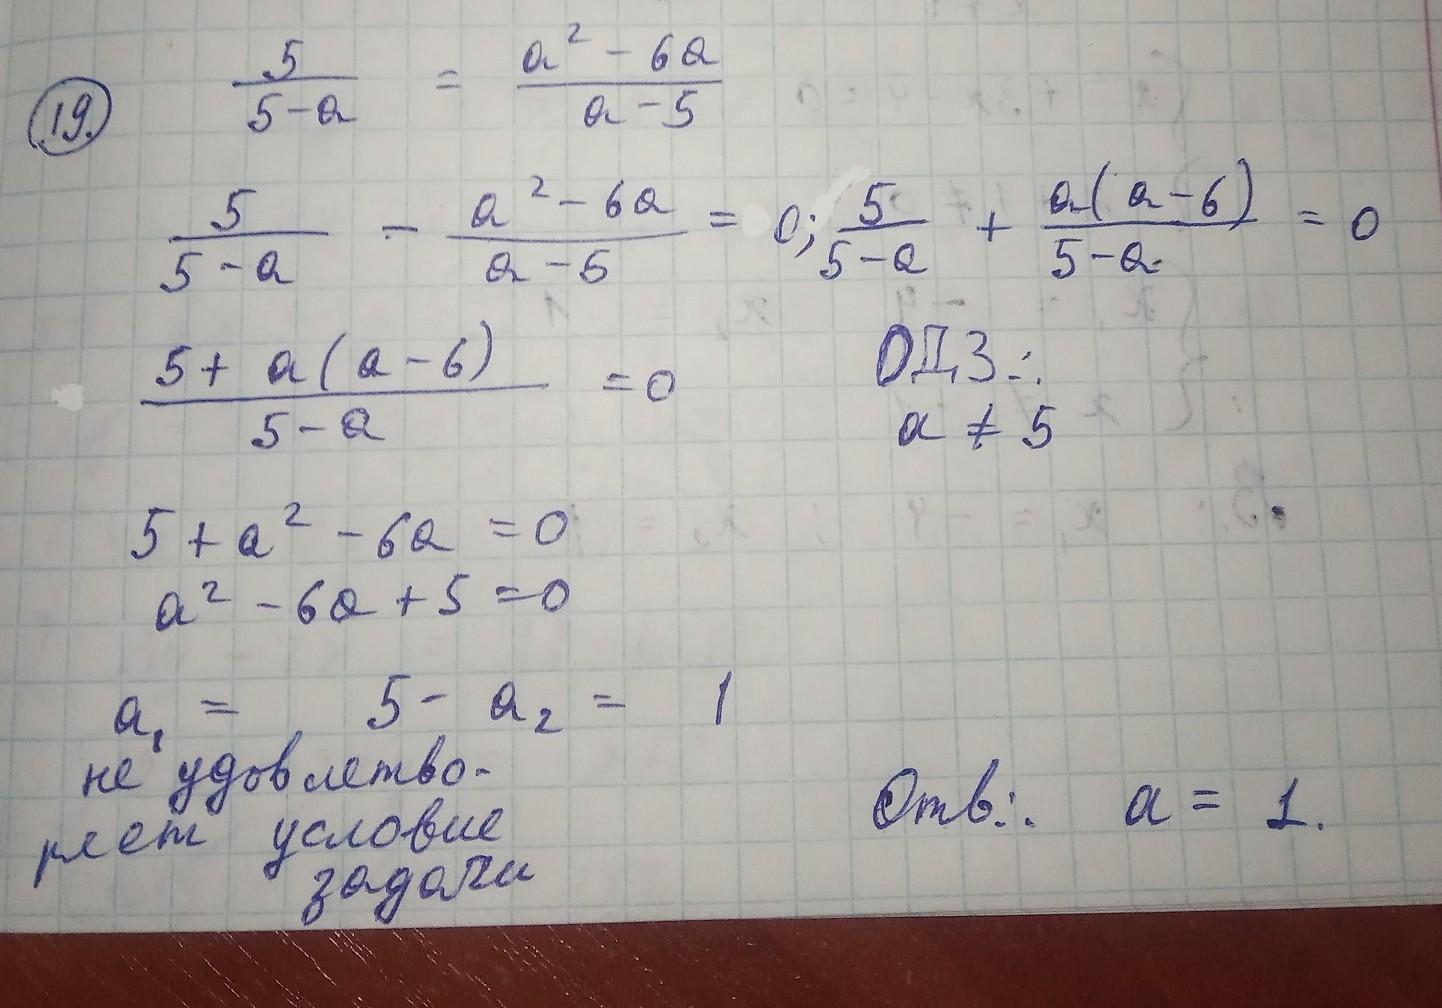 19. 5/(5-a) = (a² - 6a)/(a - 5)
5/(5-a) - (a² - 6a)/(a - 5) = 0; 5/(5-a) + a(a-6)/(5-a) = 0
(5 + a(a-6))/(5-a) = 0
ОДЗ:
a ≠ 5
5 + a² - 6a = 0
a² - 6a + 5 = 0
a₁ = 5 - a₂ = 1
не удовлетво-
ряет условие
задачи
Отв: a = 1.